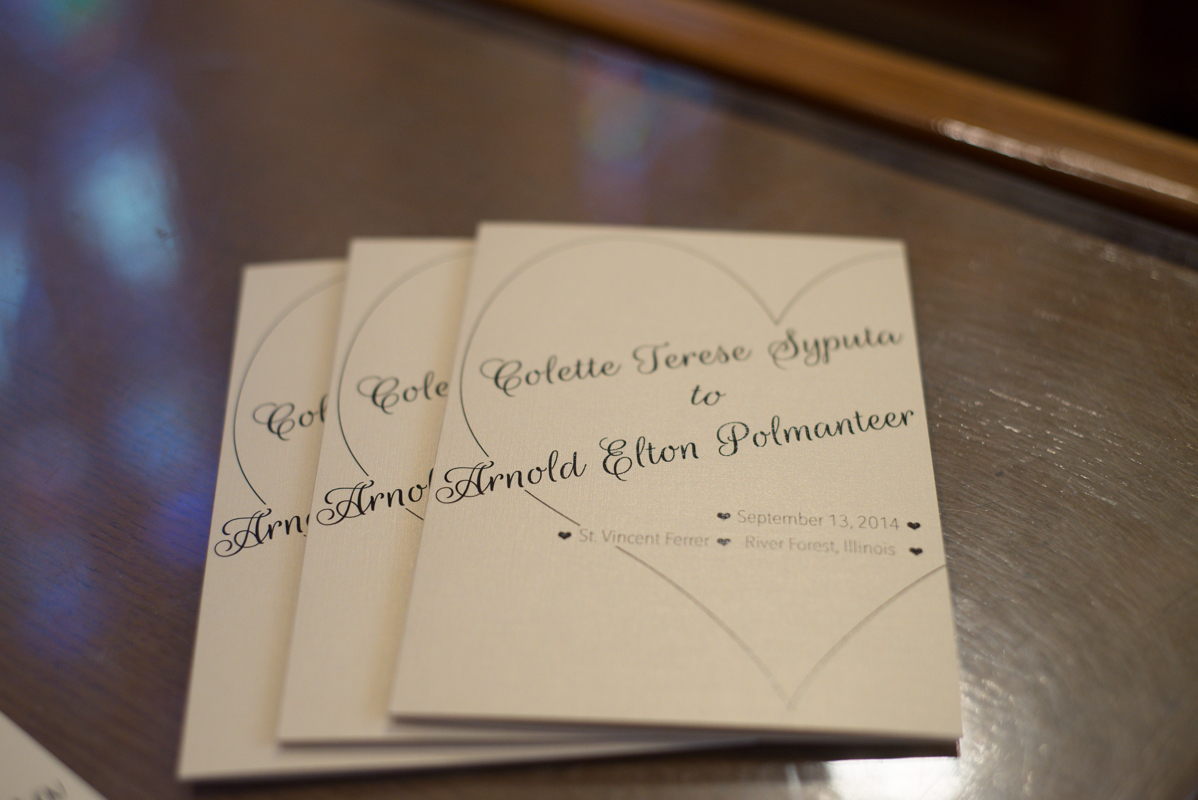 Colette Terese Syputa
to
Arnold Elton Polmanteer
❤ September 13, 2014 ❤
❤ St. Vincent Ferrer ❤ River Forest, Illinois ❤
Cole
Arnol
Col
Arn